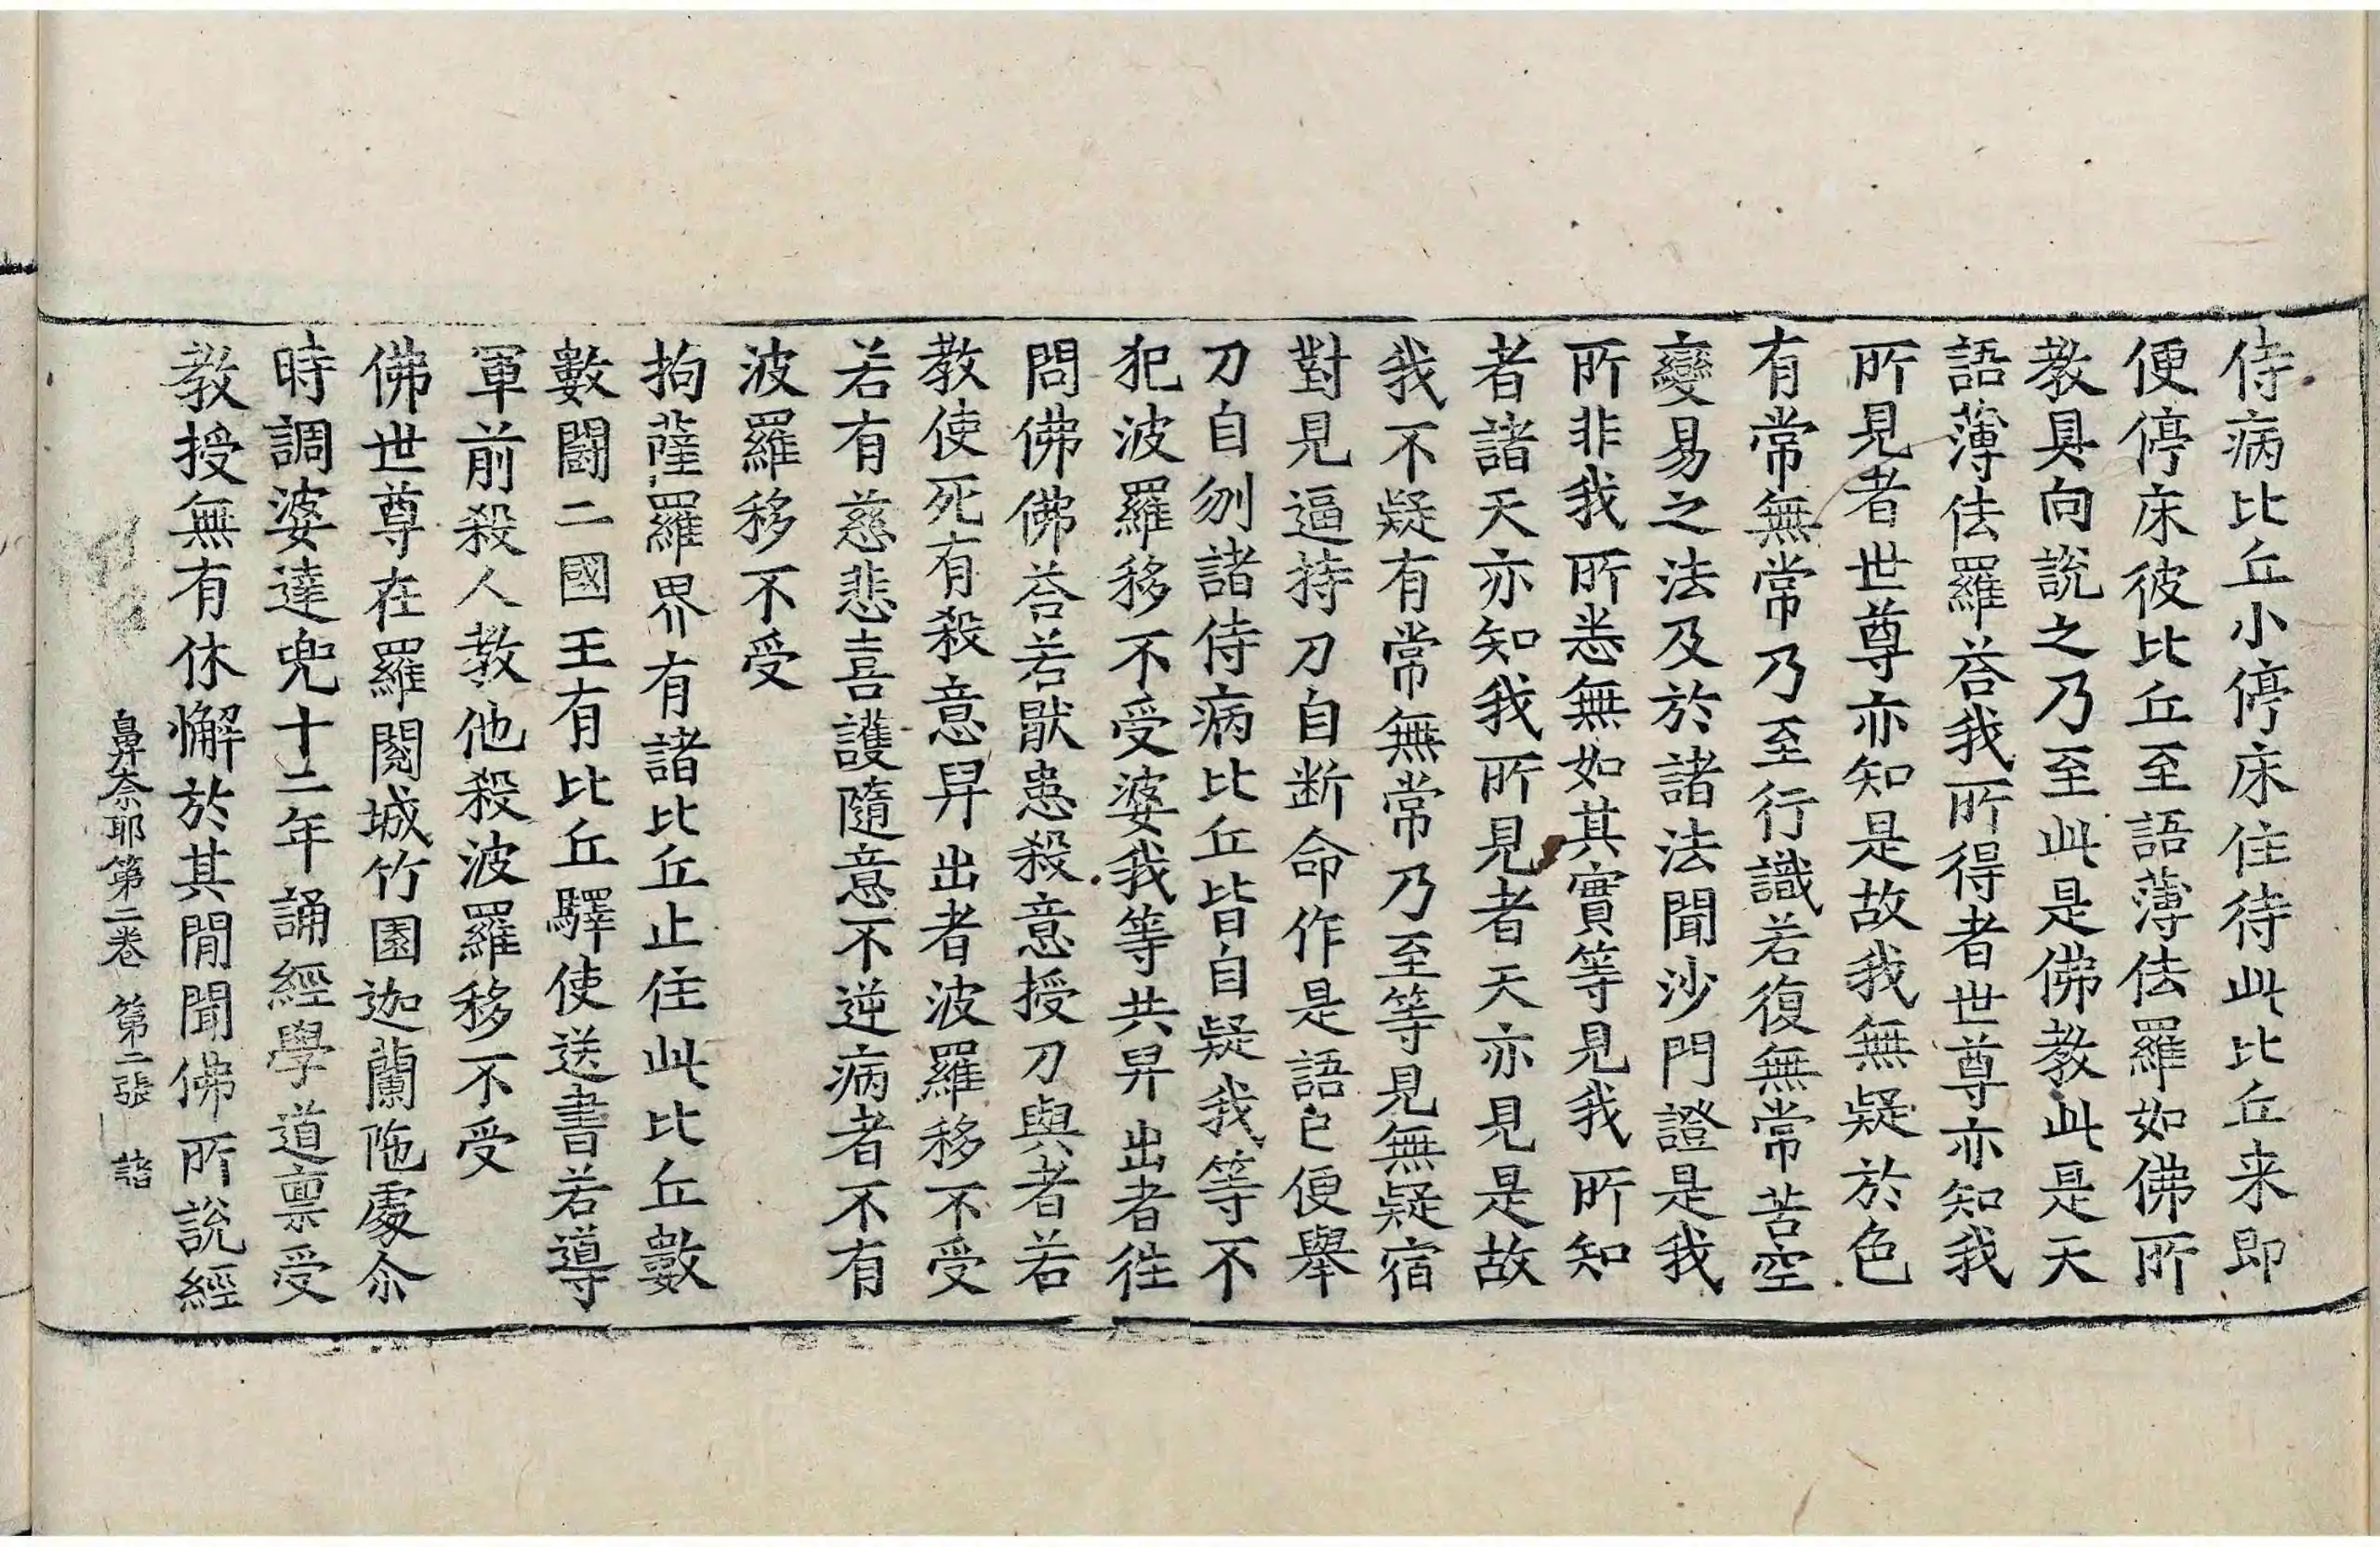 侍病比丘小停床住待此比丘来即
便停床彼比丘至語薄佉羅如佛所
教具向說之乃至此是佛教此是天
語薄佉羅荅我所得者世尊亦知我
所見者世尊亦知是故我無疑於色
有常無常乃至行識若復無常苦空
變易之法及於諸法聞沙門證是我
所非我所悉無如其實等見我所知
者諸天亦知我所見者天亦見是故
我不疑有常無常乃至等見無疑宿
對見逼持刀自断命作是語已便舉
刀自刎諸侍病比丘皆自疑我等不
犯波羅移不受婆我等共舁出者往
問佛佛荅若猒患殺意授刀與者若
教使死有殺意舁出者波羅移不受
若有慈悲喜護隨意不逆病者不有
波羅移不受
拘薩羅界有諸比丘止住此比丘數
數闘二國王有比丘驛使送書若導
軍前殺人教他殺波羅移不受
佛世尊在羅閱城竹園迦蘭陁處尒
時調婆達兜十二年誦經學道禀受
教授無有休懈於其閒聞佛所說經
鼻奈耶第二卷 第二張 諮